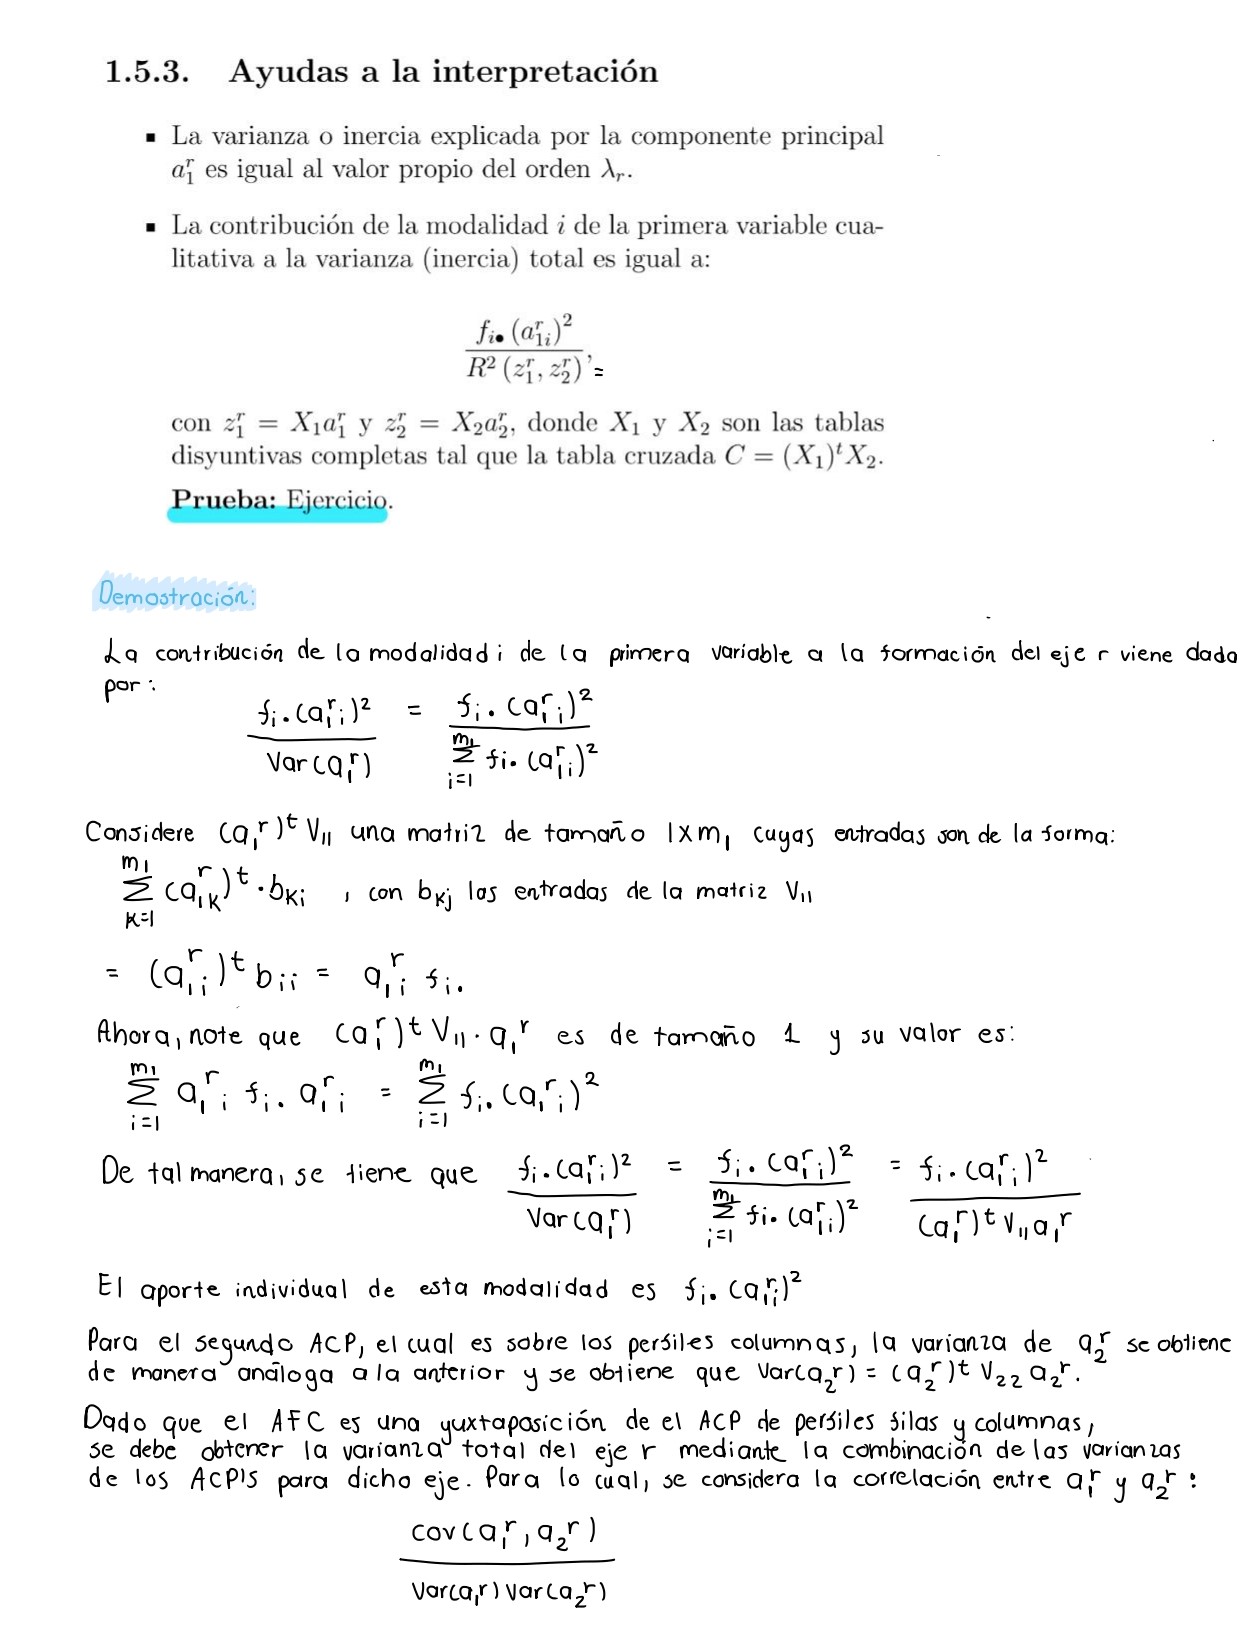 1.5.3. Ayudas a la interpretación
▪ La varianza o inercia explicada por la componente principal
a₁ʳ es igual al valor propio del orden λᵣ.
▪ La contribución de la modalidad i de la primera variable cua-
litativa a la varianza (inercia) total es igual a:
f_{i•} (a_{1i}^r)^2 / R^2 (z_1^r, z_2^r) , =
con z_1^r = X_1 a_1^r y z_2^r = X_2 a_2^r, donde X_1 y X_2 son las tablas
disyuntivas completas tal que la tabla cruzada C = (X_1)^t X_2.
Prueba: Ejercicio.
Demostración:
La contribución de la modalidad i de la primera variable a la formación del eje r viene dada
por:
f_{i•} (a_{1i}^r)^2 / Var(a_1^r) = f_{i•} (a_{1i}^r)^2 / \sum_{i=1}^{m_1} f_{i•} (a_{1i}^r)^2
Considere (a_1^r)^t V_{11} una matriz de tamaño 1×m_1 cuyas entradas son de la forma:
\sum_{k=1}^{m_1} (a_{1k}^r)^t · b_{ki} , con b_{kj} las entradas de la matriz V_{11}
= (a_{1i}^r)^t b_{ii} = a_{1i}^r f_{i•}
Ahora, note que (a_1^r)^t V_{11} · a_1^r es de tamaño 1 y su valor es:
\sum_{i=1}^{m_1} a_{1i}^r f_{i•} a_{1i}^r = \sum_{i=1}^{m_1} f_{i•} (a_{1i}^r)^2
De tal manera, se tiene que f_{i•} (a_{1i}^r)^2 / Var(a_1^r) = f_{i•} (a_{1i}^r)^2 / \sum_{i=1}^{m_1} f_{i•} (a_{1i}^r)^2 = f_{i•} (a_{1i}^r)^2 / (a_1^r)^t V_{11} a_1^r
El aporte individual de esta modalidad es f_{i•} (a_{1i}^r)^2
Para el segundo ACP, el cual es sobre los perfiles columnas, la varianza de a_2^r se obtiene
de manera análoga a la anterior y se obtiene que Var(a_2^r) = (a_2^r)^t V_{22} a_2^r.
Dado que el AFC es una yuxtaposición de el ACP de perfiles filas y columnas,
se debe obtener la varianza total del eje r mediante la combinación de las varianzas
de los ACP's para dicho eje. Para lo cual, se considera la correlación entre a_1^r y a_2^r:
cov(a_1^r, a_2^r) / Var(a_1^r) Var(a_2^r)